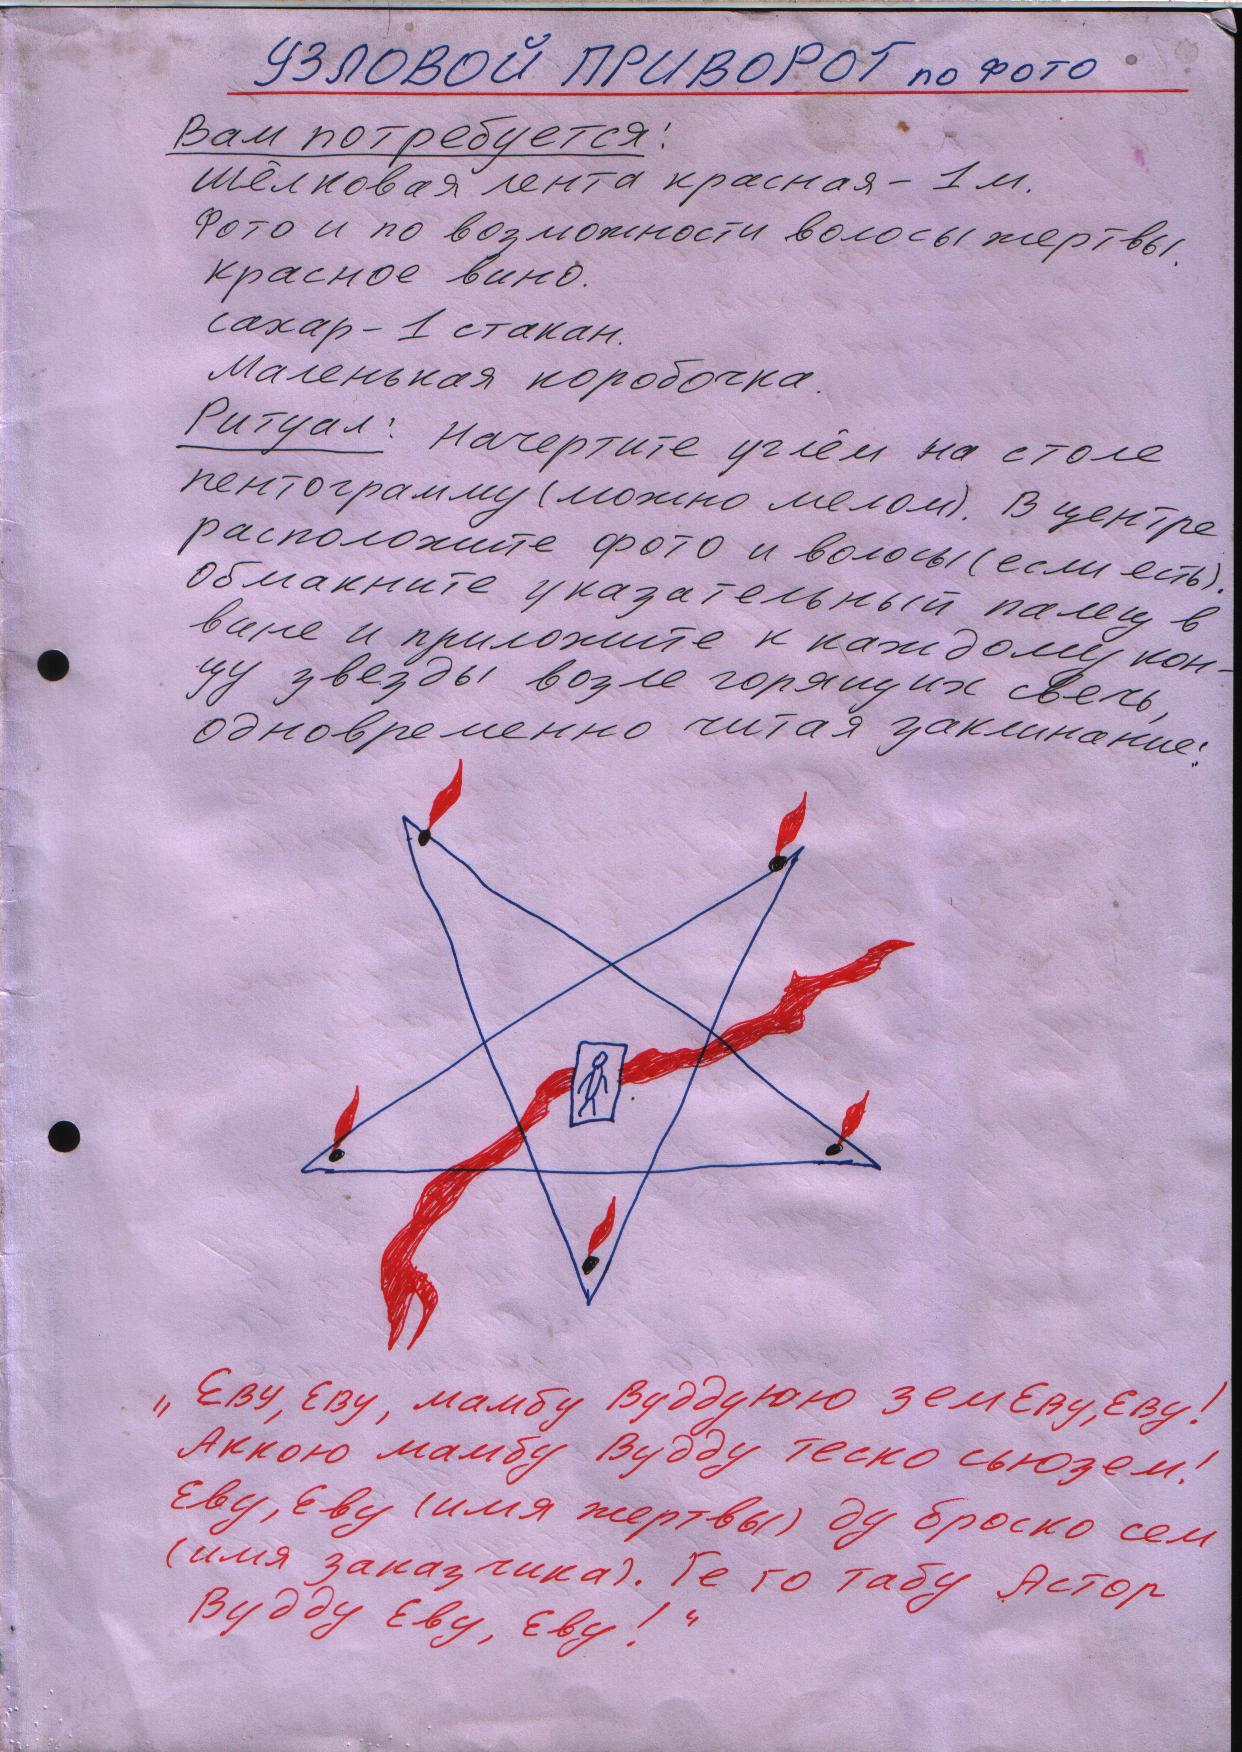 УЗЛОВОЙ ПРИВОРОТ по фото
Вам потребуется:
Шёлковая лента красная - 1 м.
Фото и по возможности волосы жертвы.
красное вино.
сахар - 1 стакан.
Маленькая коробочка.
Ритуал: Начертите углём на столе
пентограмму (можно мелом). В центре
расположите фото и волосы (если есть).
Обмакните указательный палец в
вине и приложите к каждому кон-
цу звезды возле горящих свечь,
одновременно читая заклинание:
„Еву, Еву, мамбу Вуддуюю зем Еву, Еву!
Аккою мамбу Вудду теско сьюзем!
Еву, Еву (имя жертвы) ду броско сем
(имя заказчика). Ге го табу Астор
Вудду Еву, Еву! “